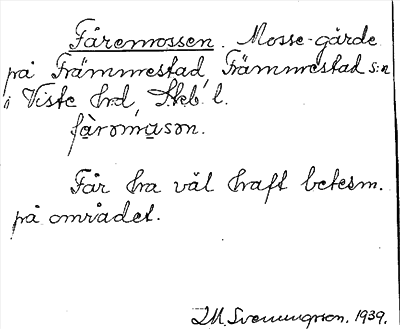 Fåremossen. Mosse-gärde
på Främmestad, Främmestad s:n
i Viste hrd, Skb. l.
fåromason.
Får ha väl haft betesm.
på området.
I.M. Svenungsson. 1939.